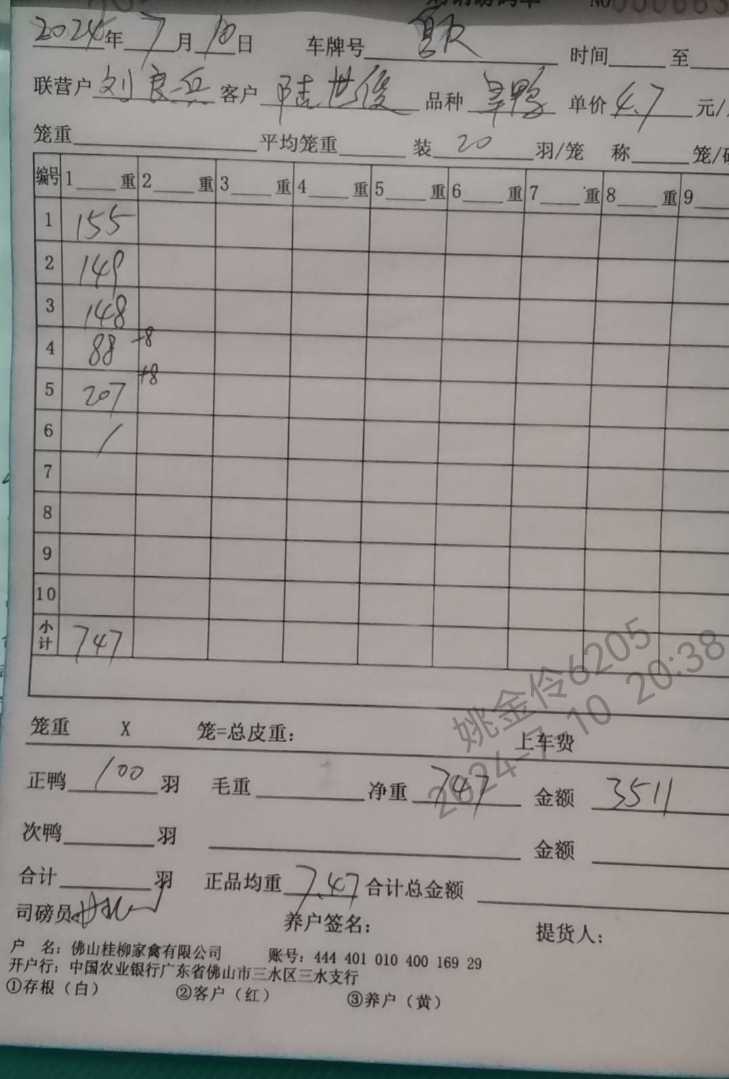 2024年7月10日 车牌号 时间 至
联营户 刘良兵 客户 陆世俊 品种 单价 4.7 元/
笼重 平均笼重 装 20 羽/笼 称 笼/
编号 1 重 2 重 3 重 4 重 5 重 6 重 7 重 8 重 9
1 155
2 149
3 148
4 88 -8
5 207 +8
6 /
7
8
9
10
小计 747
笼重 X 笼=总皮重： 上车费
正鸭 100 羽 毛重 净重 747 金额 3511
次鸭 羽 金额
合计 羽 正品均重 7.47 合计总金额
司磅员 养户签名： 提货人：
户 名：佛山桂柳家禽有限公司 账号：444 401 010 400 169 29
开户行：中国农业银行广东省佛山市三水区三水支行
①存根（白） ②客户（红） ③养户（黄）
姚金伶6205
2024-7-10 20:38